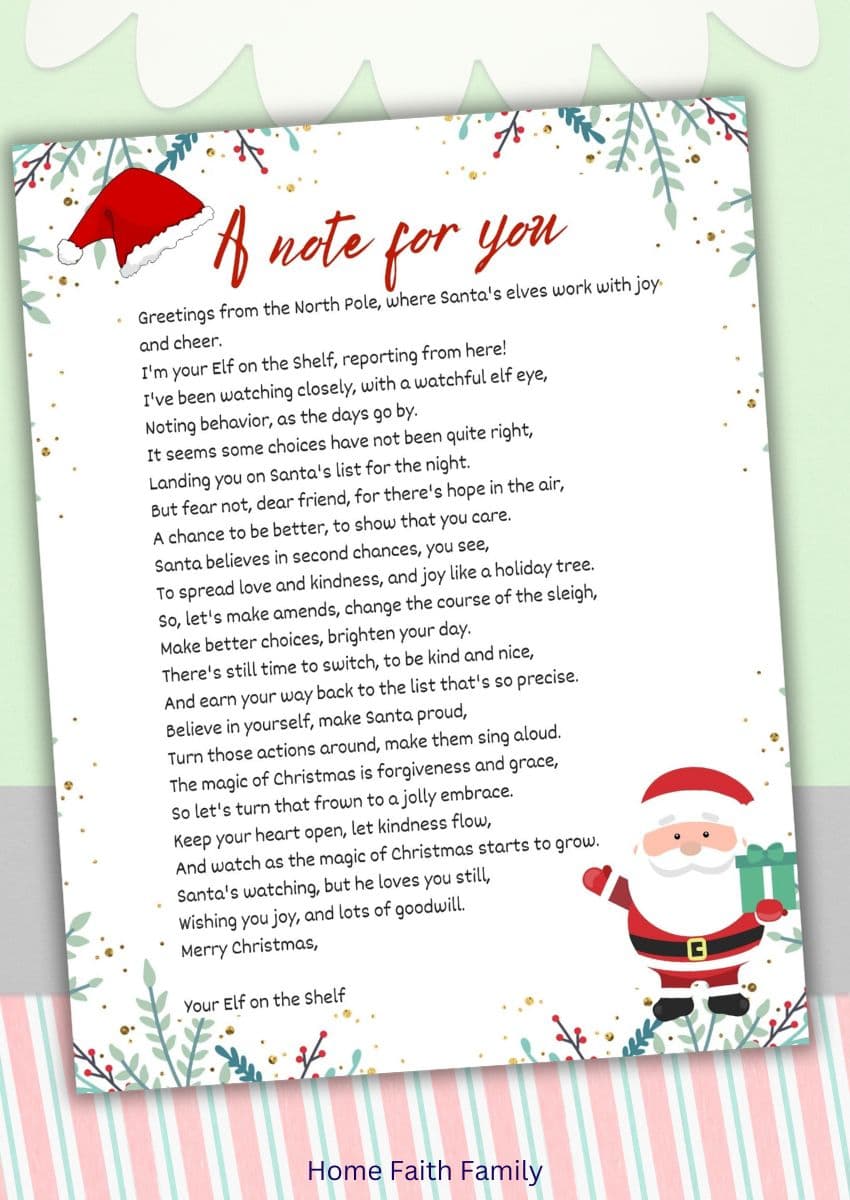 A note for you
Greetings from the North Pole, where Santa's elves work with joy
and cheer.
I'm your Elf on the Shelf, reporting from here!
I've been watching closely, with a watchful elf eye,
Noting behavior, as the days go by.
It seems some choices have not been quite right,
Landing you on Santa's list for the night.
But fear not, dear friend, for there's hope in the air,
A chance to be better, to show that you care.
Santa believes in second chances, you see,
To spread love and kindness, and joy like a holiday tree.
So, let's make amends, change the course of the sleigh,
Make better choices, brighten your day.
There's still time to switch, to be kind and nice,
And earn your way back to the list that's so precise.
Believe in yourself, make Santa proud,
Turn those actions around, make them sing aloud.
The magic of Christmas is forgiveness and grace,
So let's turn that frown to a jolly embrace.
Keep your heart open, let kindness flow,
And watch as the magic of Christmas starts to grow.
Santa's watching, but he loves you still,
Wishing you joy, and lots of goodwill.
Merry Christmas,
Your Elf on the Shelf
Home Faith Family